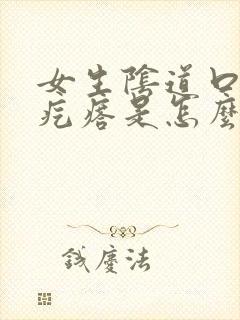 女生陰道口
疙瘩是怎麼
錢慶法